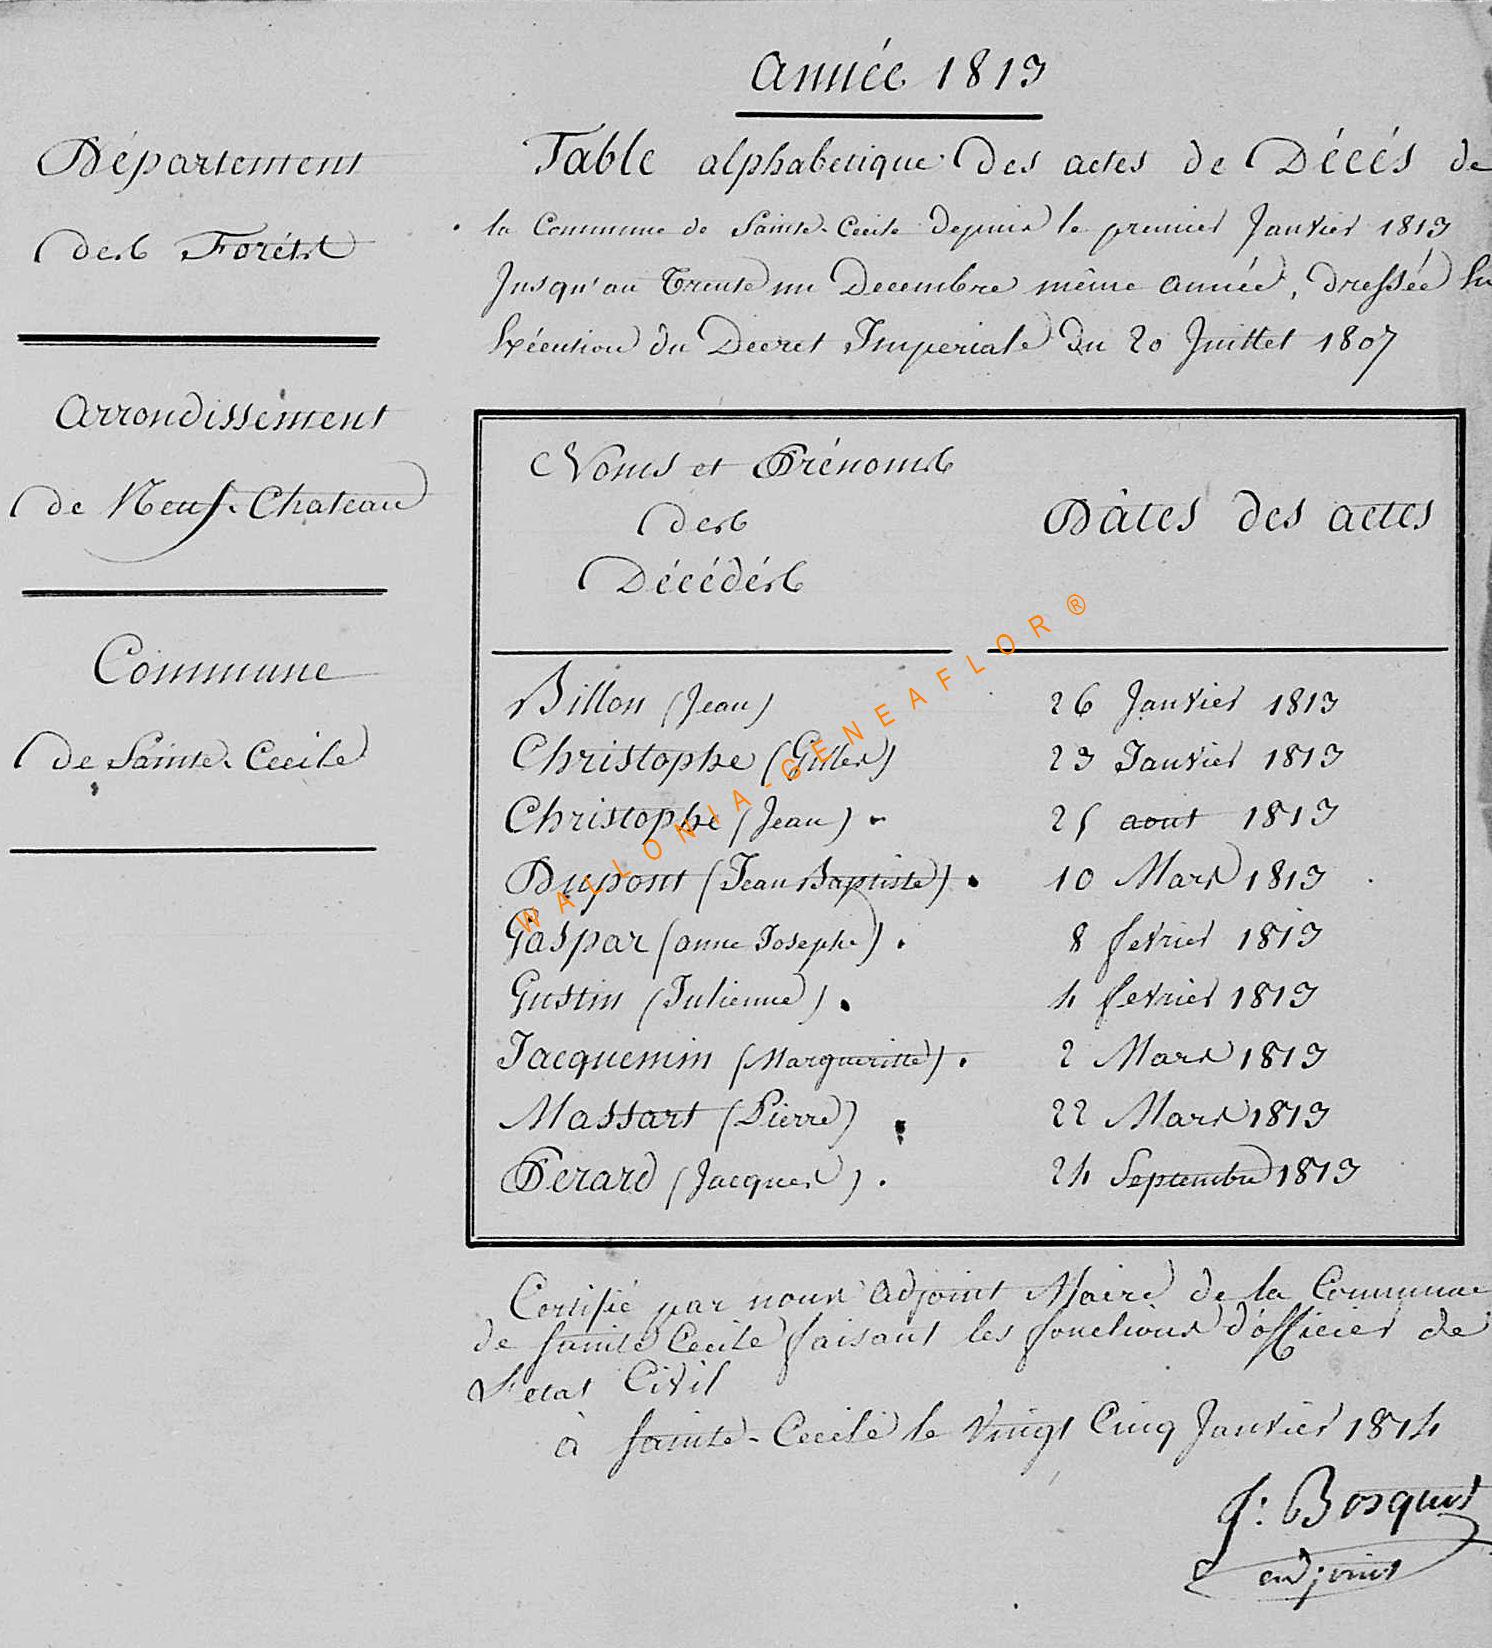 Année 1813
Département
des Foréts
Arrondissement
de Neuf-Chateau
Commune
de Sainte-Cecile
Table alphabetique des actes de Décés de
la Commune de Sainte-Cecile depuis le premier Janvier 1813
Jusqu'au trente un Decembre même année, dressée En
Exécution du Decret Imperiale du 20 Juillet 1807
Noms et Prénoms
des
Décédés
Dâtes des actes
Billon (Jean) 26 Janvier 1813
Christophe (Gilles) 23 Janvier 1813
Christophe (Jean) 25 aout 1813
Dupont (Jean Baptiste) 10 Mars 1813
Gaspar (anne Josephe) 8 fevrier 1813
Gustin (Julienne) 4 fevrier 1813
Jacquemin (Margueritte) 2 Mars 1813
Massart (Pierre) 22 Mars 1813
Perard (Jacques) 24 Septembre 1813
Certifié par nous adjoint Maire de la Commune
de Sainte Cecile faisant les fonctions d'officier de
L'etat Civil
à Sainte-Cecile le Vingt Cinq Janvier 1814
J: Bosquet
adjoint
WALLONIA-GENEAFLOR®